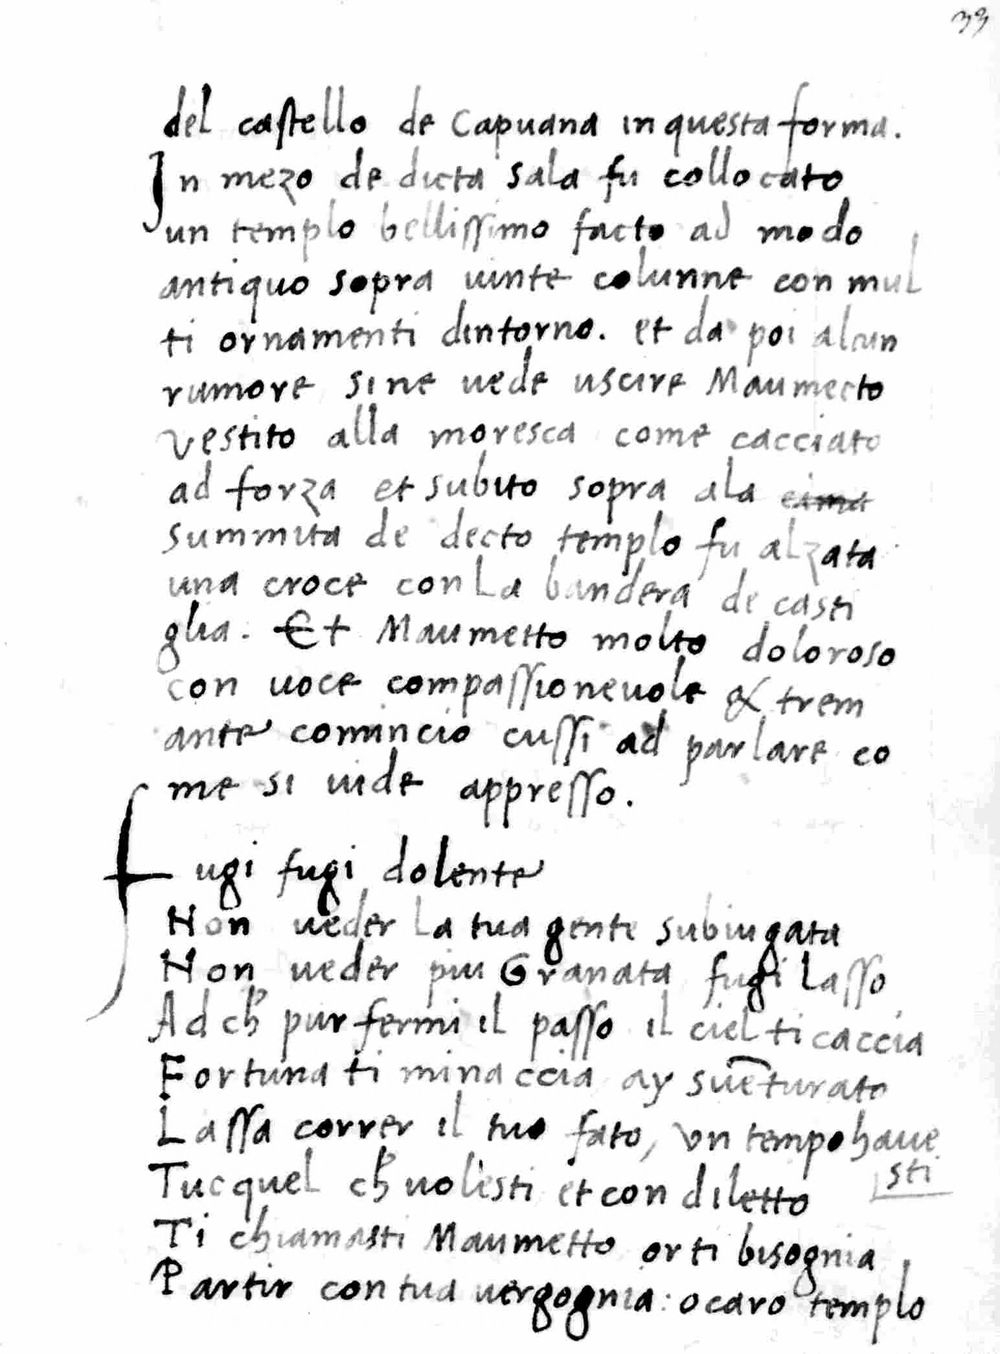 33
del castello de Capuana in questa forma.
In mezo de dicta sala fu collocato
un templo bellissimo facto ad modo
antiquo sopra uinte colunne con mul
ti ornamenti dintorno. et da poi alcun
rumore si ne uede uscire Maumecto
vestito alla moresca come cacciato
ad forza et subito sopra ala cima
summita de decto templo fu alzata
una croce con La bandera de casti
glia. Et Maumetto molto doloroso
con uoce compassioneuole & trem
ante comincio cussi ad parlare co
me si uide appresso.
Fugi fugi dolente
Non ueder La tua gente subiugata
Non ueder piu Granata fugi Lasso
Ad ch' pur fermi il passo il ciel ti caccia
Fortuna ti minaccia ay suēturato
Lassa correr il tuo fato, un tempo haue
sti
Tuc quel ch' uolesti et con diletto
Ti chiamasti Maumetto or ti bisognia
Partir con tua uergognia: o caro templo